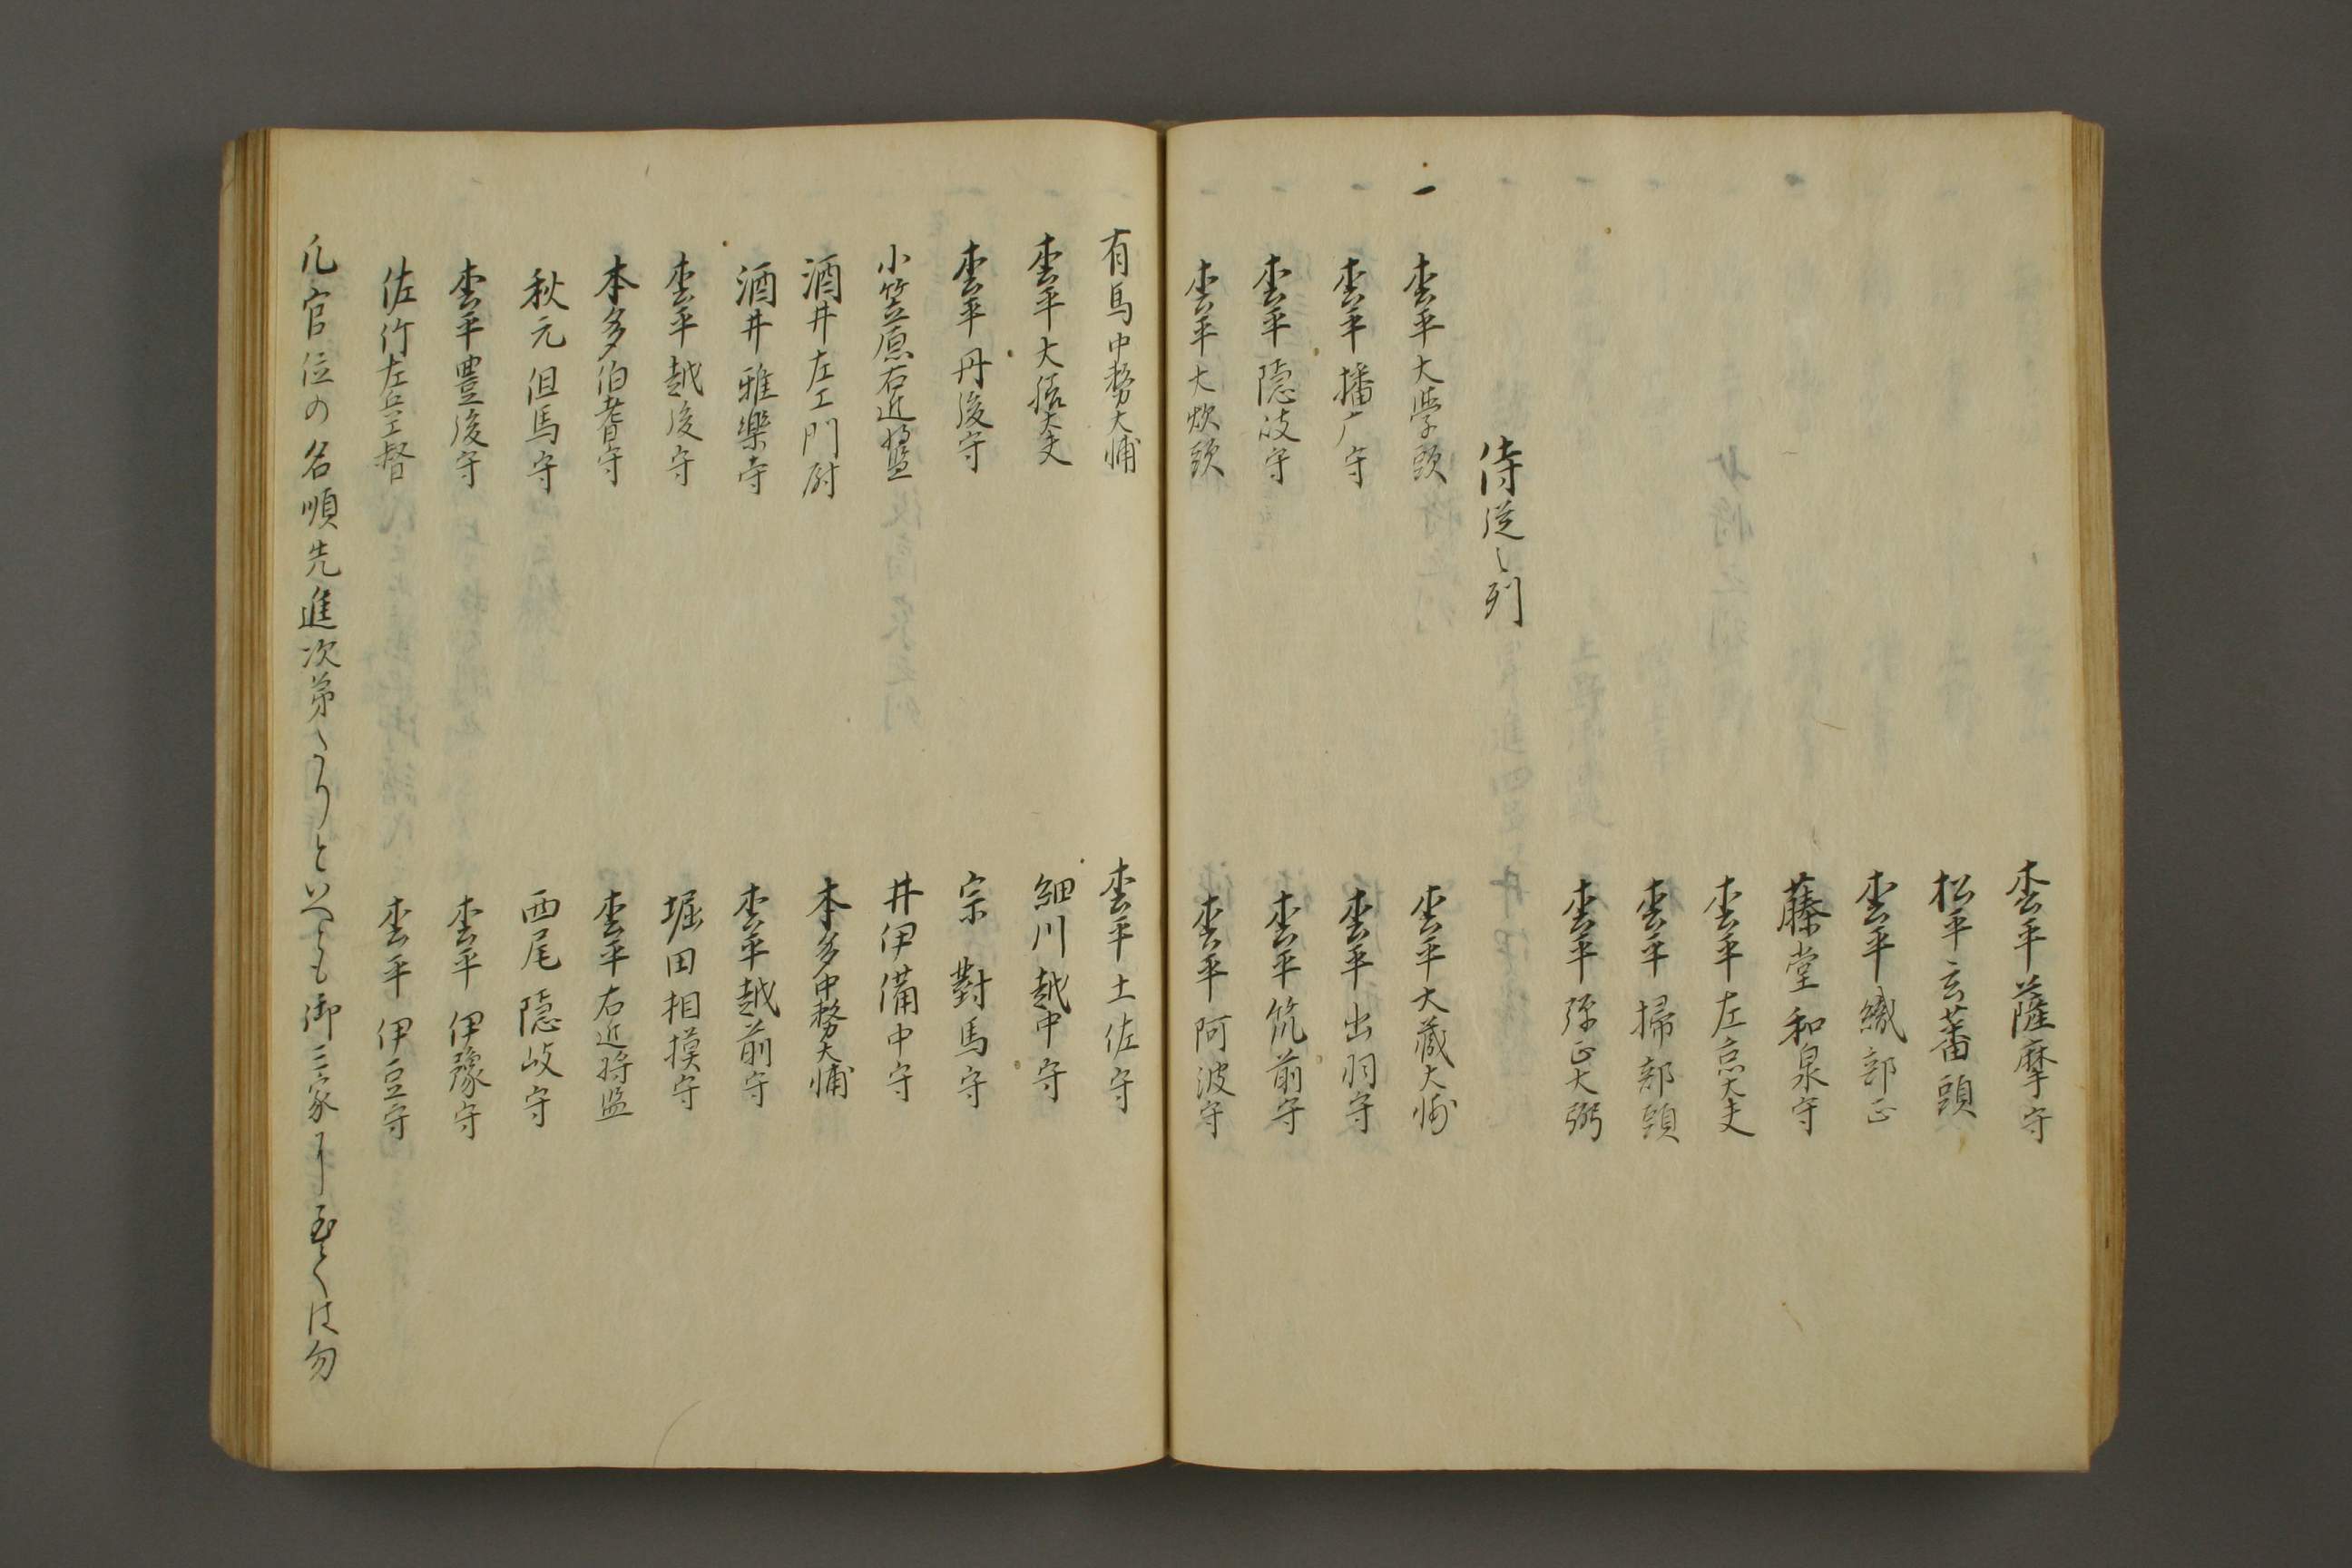 枩平薩摩守
松平玄蕃頭
枩平織部正
藤堂和泉守
枩平左京大夫
枩平掃部頭
枩平弾正大弼
侍従之列
一 枩平大学頭
枩平大蔵大輔
枩平播广守
枩平出羽守
枩平隠岐守
枩平筑前守
枩平大炊頭
枩平阿波守
有馬中務大輔
枩平土佐守
枩平大膳大夫
細川越中守
枩平丹後守
宗對馬守
小笠原右近将監
井伊備中守
酒井左エ門尉
本多中務大輔
酒井雅樂寺
枩平越前守
枩平越後守
堀田相摸守
本多伯耆守
枩平右近将监
秋元但馬守
西尾隠岐守
枩平豊後守
枩平伊豫守
佐竹左兵エ督
枩平伊豆守
凡官位の名順先進次第たりといへとも御三家に至ては勿